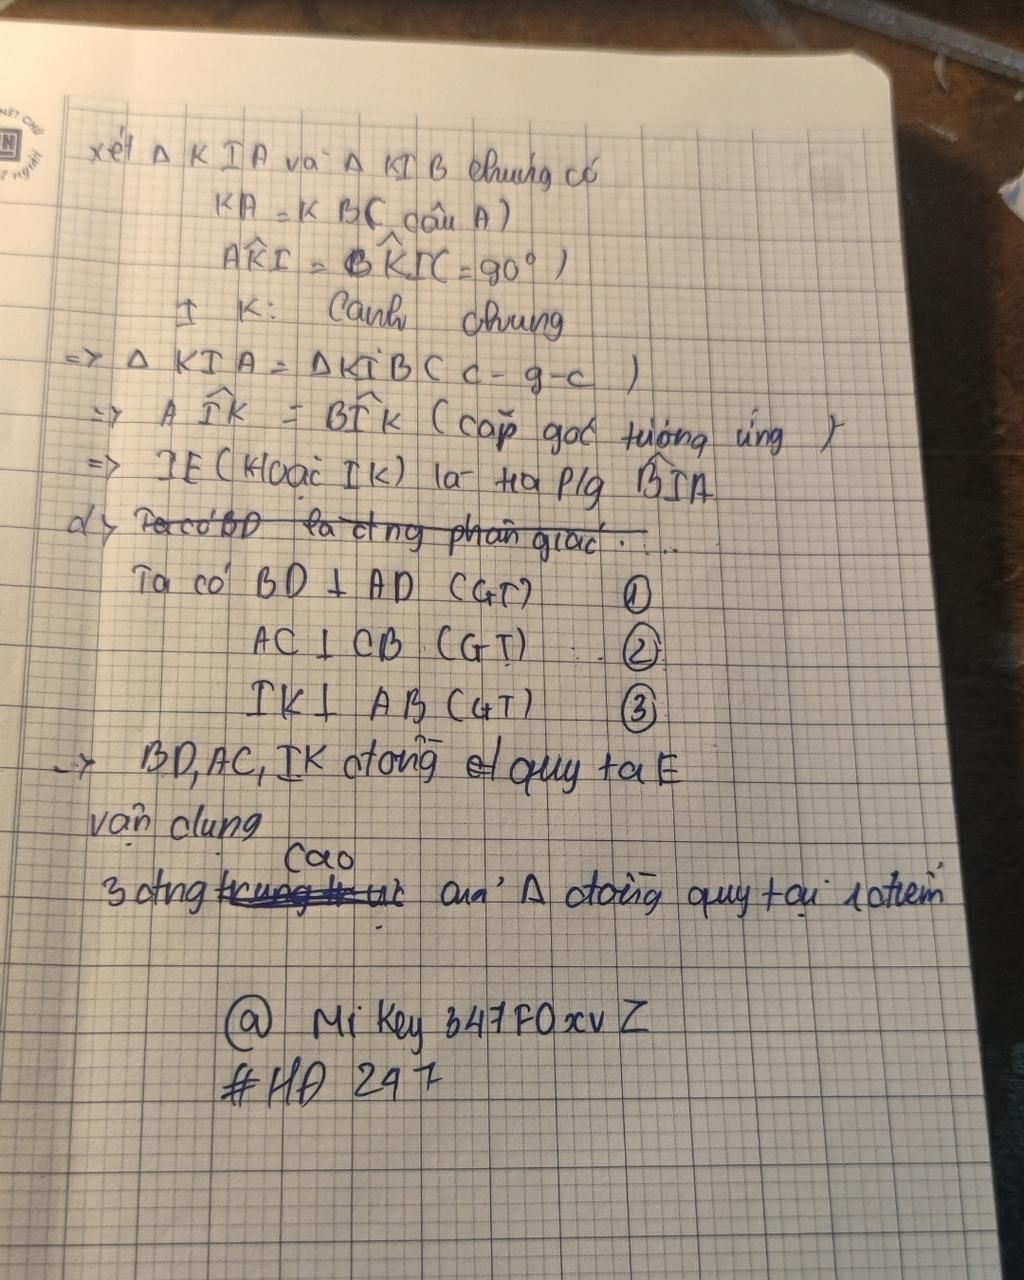 NÉT CHỮ
N
Z người
xét Δ KIA và Δ KIB chúng có
KA = KB ( dấu A)
AK̂I = BK̂I (= 90°)
IK: Cạnh chung
=> Δ KIA = ΔKIB ( c - g - c )
=> AÎK = BÎK (cặp góc tương ứng )
=> IE (Hoặc IK) là tia p/g BÎA
d> Ta có BD là đng phân giác ....
Ta có BD ⊥ AD (GT) ①
AC ⊥ CB (GT) ②
IK ⊥ AB (GT) ③
-> BD, AC, IK đồng quy tại E
vận dụng
cao
3 đng trung trực của Δ đồng quy tại 1 điểm
@ Mi Key 347FOxvZ
#HĐ 247